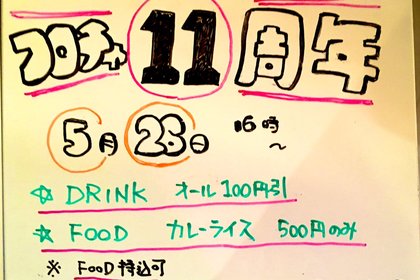 フロチャ 11 周年
5月 23日 16時~
☆ DRINK オール100円引
☆ FOOD カレーライス 500円のみ
※ FOOD 持込可